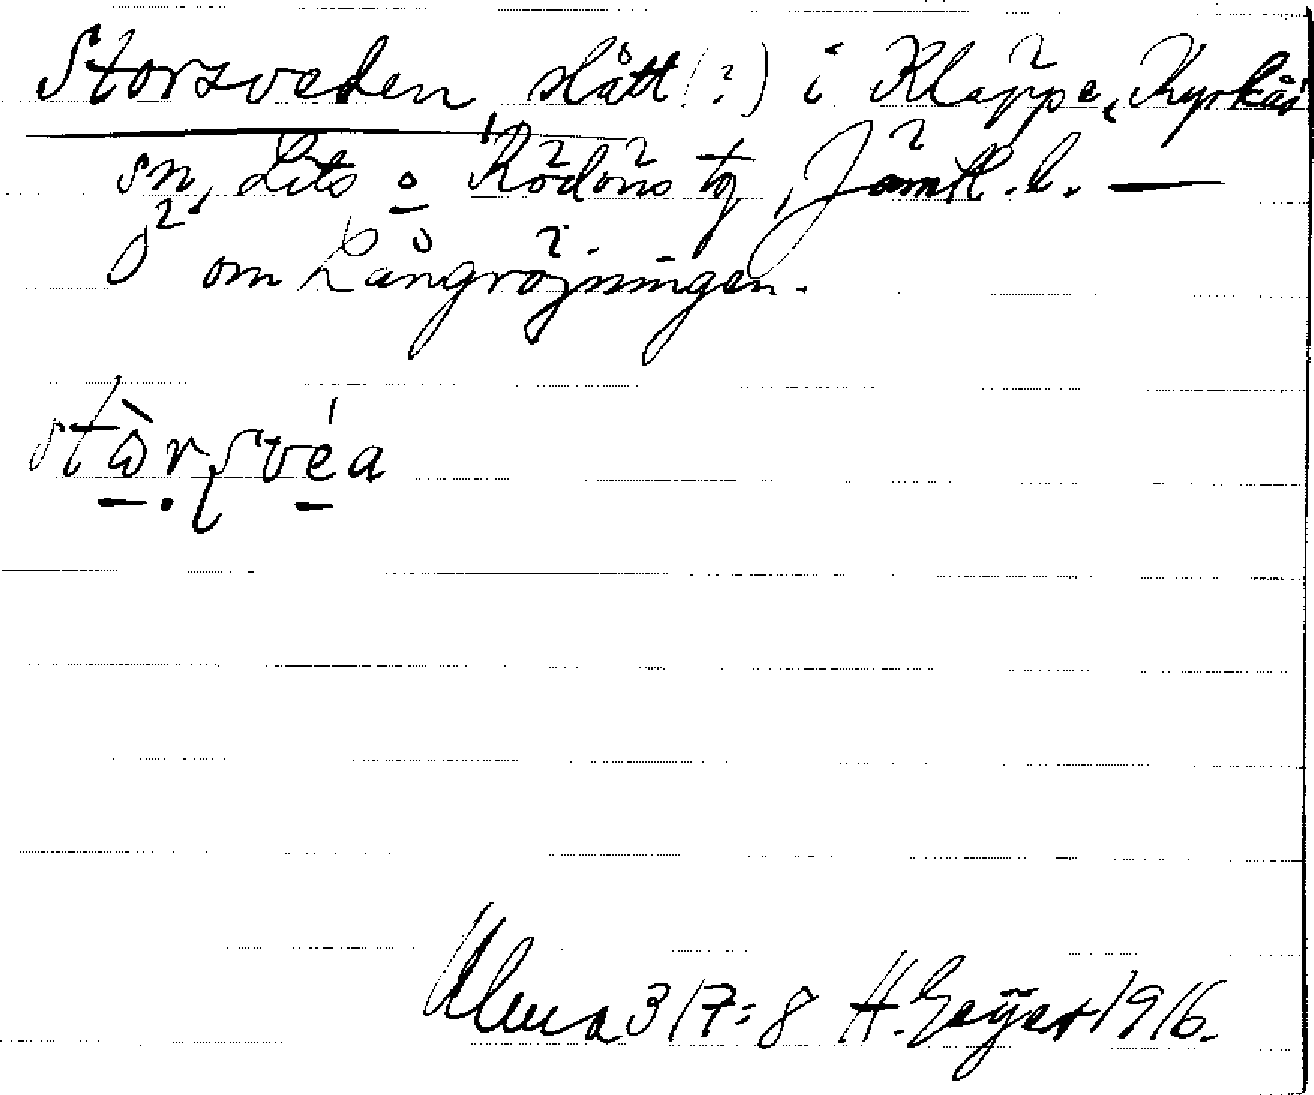 Storsveden slått (?) i Kläppe, Kyrkås
sn, Lits o Rödöns tg, Jämtl. l. —
O om Långröjningen.
stɷ̀rʂvéa
Ulma 317:8 H. Geijer 1916.